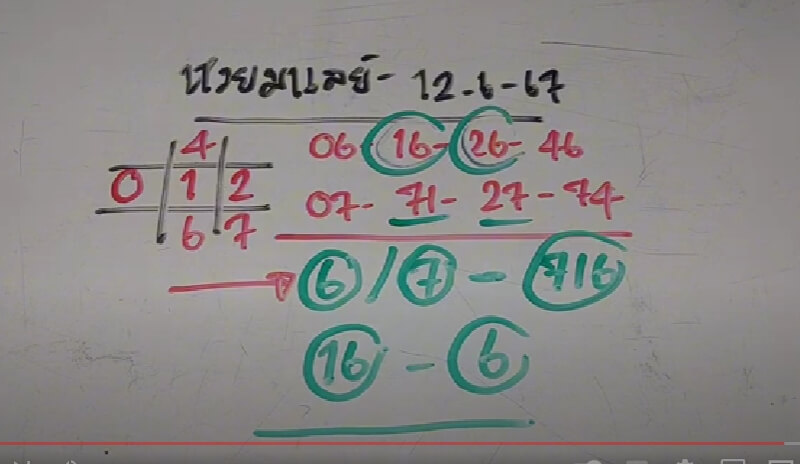 หวยมาเลย์- 12-6-67
4 06-16-26-46
0 1 2 07-71-27-74
6 7
6/7-716
16-6